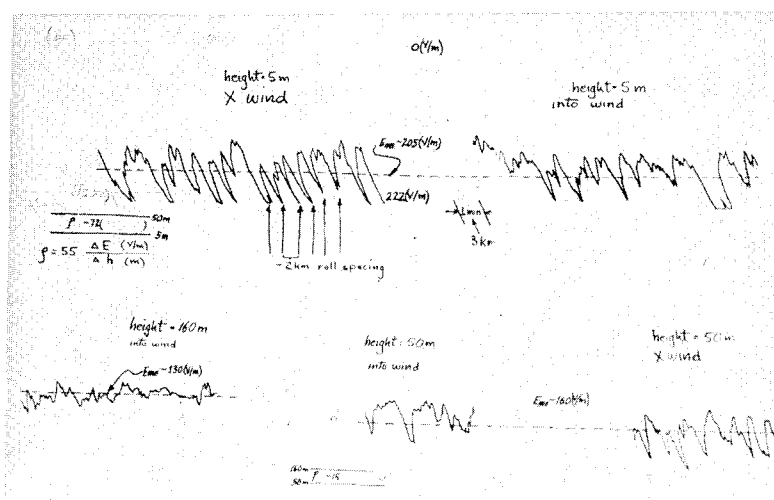 0(V/m)
height = 5 m
X wind
height = 5 m
into wind
-205(V/m)
222(V/m)
1min
3 km
50m
5m
ρ = 55 ΔE (V/m)
Δh (m)
~2km roll spacing
height = 160 m
into wind
-130(V/m)
height = 50m
into wind
height = 50m
X wind
-160(V/m)
160m
50m